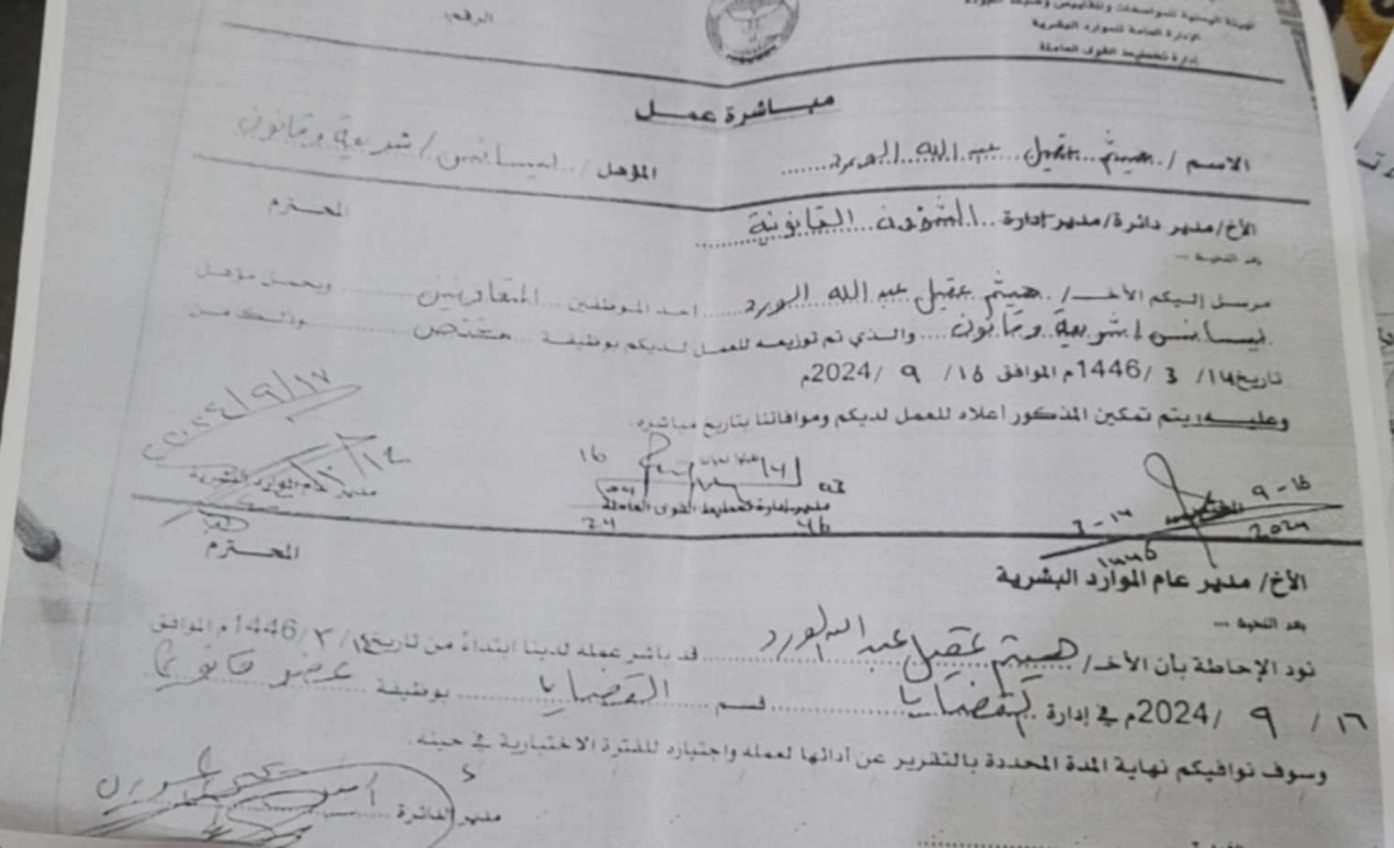 الهيئة اليمنية للمواصفات والمقاييس وضبط الجودة
الإدارة العامة للموارد البشرية
إدارة تخطيط القوى العاملة
الرقم:
مباشرة عمل
الاسم / هيثم عقيل عبد الله الورد المؤهل / ليسانس / شريعة وقانون
الأخ/مدير دائرة/مدير إدارة الشؤون القانونية المحترم
بعد التحية ...
مرسل إليكم الأخ/ هيثم عقيل عبد الله الورد احد الموظفين المتعاونين ويحمل مؤهل
ليسانس / شريعة وقانون والذي تم توزيعه للعمل لديكم بوظيفة مختص وذلك من
تاريخ ١٣/ 3 /1446م الموافق ١٦/ ٩ /2024م
وعليه يتم تمكين المذكور أعلاه للعمل لديكم وموافاتنا بتاريخ مباشرته.
٢٠٢٤/٩/١٧
16 03
مدير إدارة تخطيط القوى العاملة
24 46
المختص
٩-١٦
2024
مدير عام الموارد البشرية
الأخ/ مدير عام الموارد البشرية المحترم
بعد التحية ...
نود الإحاطة بأن الأخ/ هيثم عقيل عبد الله الورد قد باشر عمله لدينا ابتداءً من تاريخ ١٣/ ٣ /1446م الموافق
١٦ / ٩ /2024م في إدارة القضايا قسم القضايا بوظيفة عضو قانوني
وسوف نوافيكم نهاية المدة المحددة بالتقرير عن أدائها لعمله واجتيازه للفترة الاختبارية في حينه.
مدير الدائرة